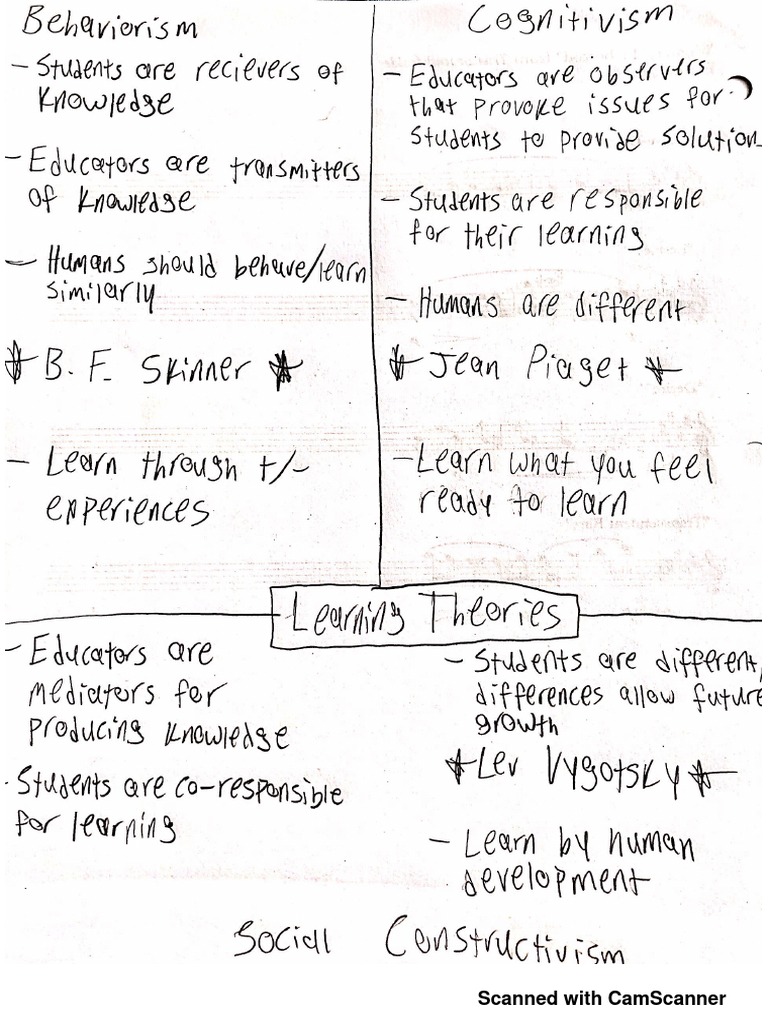 Behaviorism
- Students are recievers of
Knowledge
- Educators are transmitters
of Knowledge
- Humans should behave/learn
similarly
* B. F. Skinner *
- Learn through +/-
experiences
Cognitivism
- Educators are observers
that provoke issues for
students to provide solution
- Students are responsible
for their learning
- Humans are different
* Jean Piaget *
- Learn what you feel
ready to learn
Learning Theories
- Educators are
mediators for
producing knowledge
- Students are co-responsible
for learning
- Students are different,
differences allow future
growth
* Lev Vygotsky *
- Learn by human
development
Social Constructivism
Scanned with CamScanner